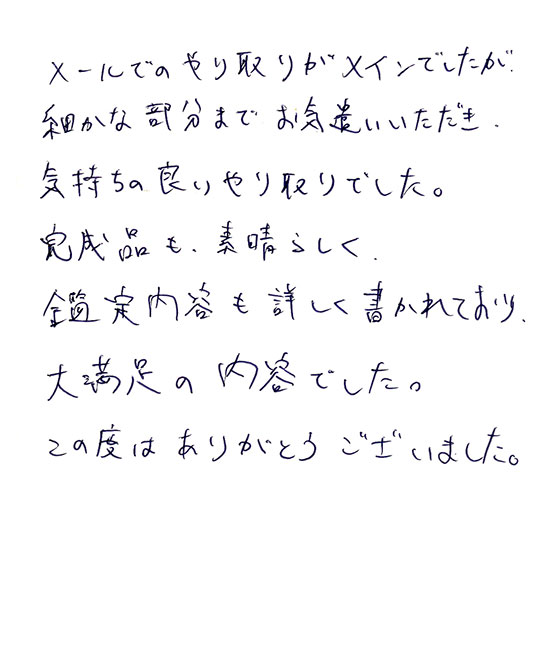 メールでのやり取りがメインでしたが、
細かな部分までお気遣いいただき、
気持ちの良いやり取りでした。
完成品も、素晴らしく、
鑑定内容も詳しく書かれており、
大満足の内容でした。
この度はありがとうございました。